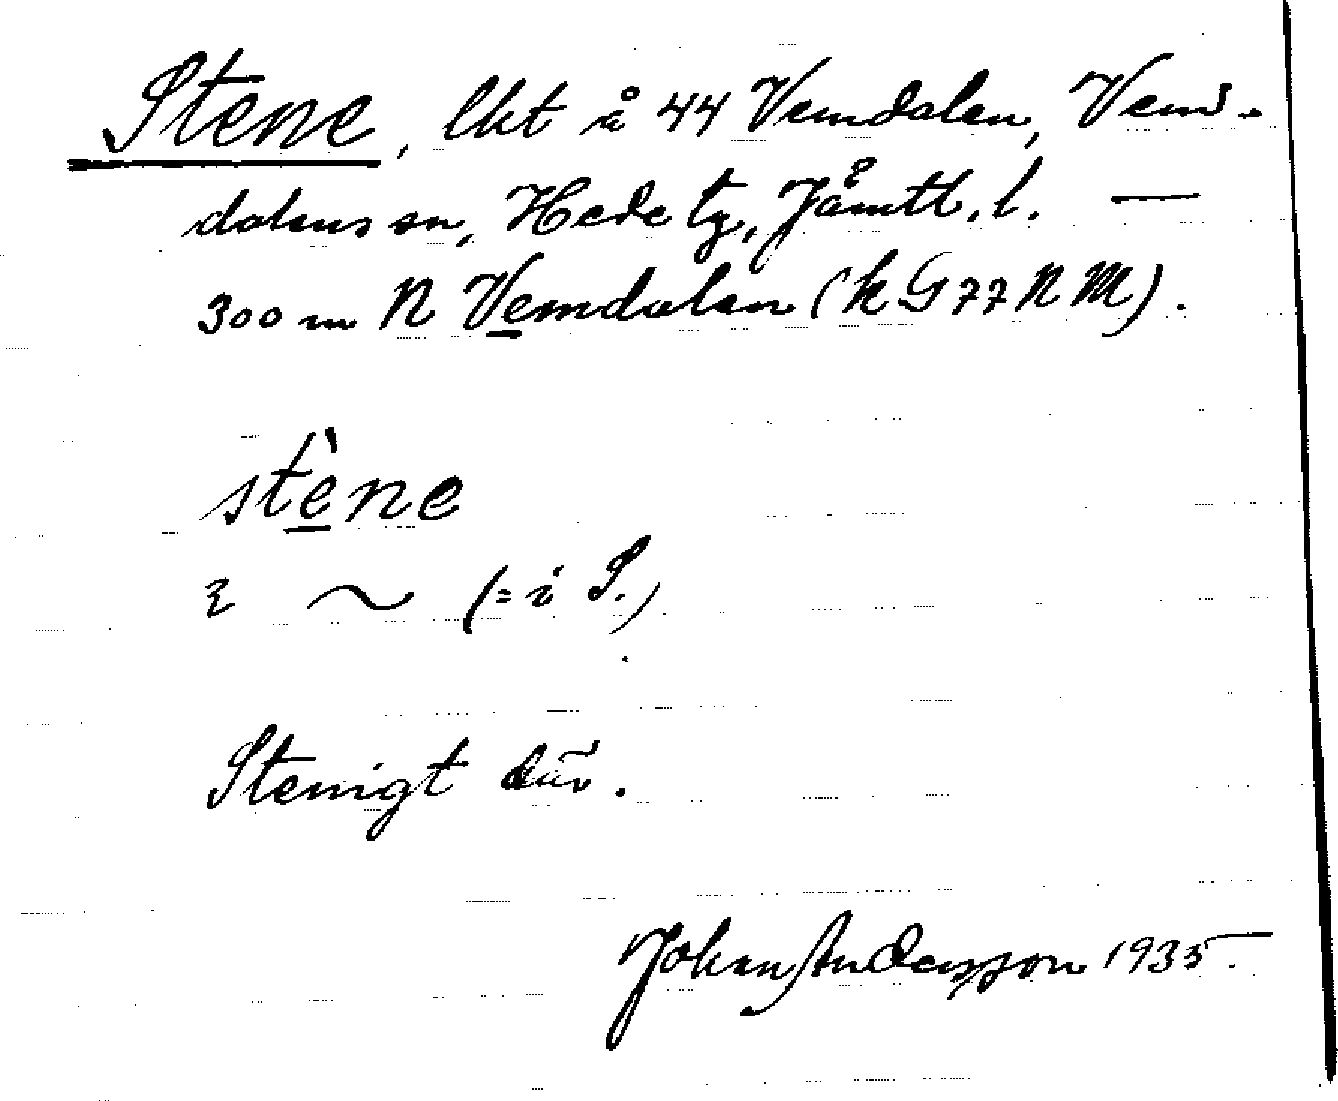 Stene, lkt å 44 Vemdalen, Vem-
dalens sn, Hede tg, Jämtl. l. —
300 m N Vemdalen (k G 77 N M).
stène
i ~ (= i S.)
Stenigt där.
Johan Andersson 1935.